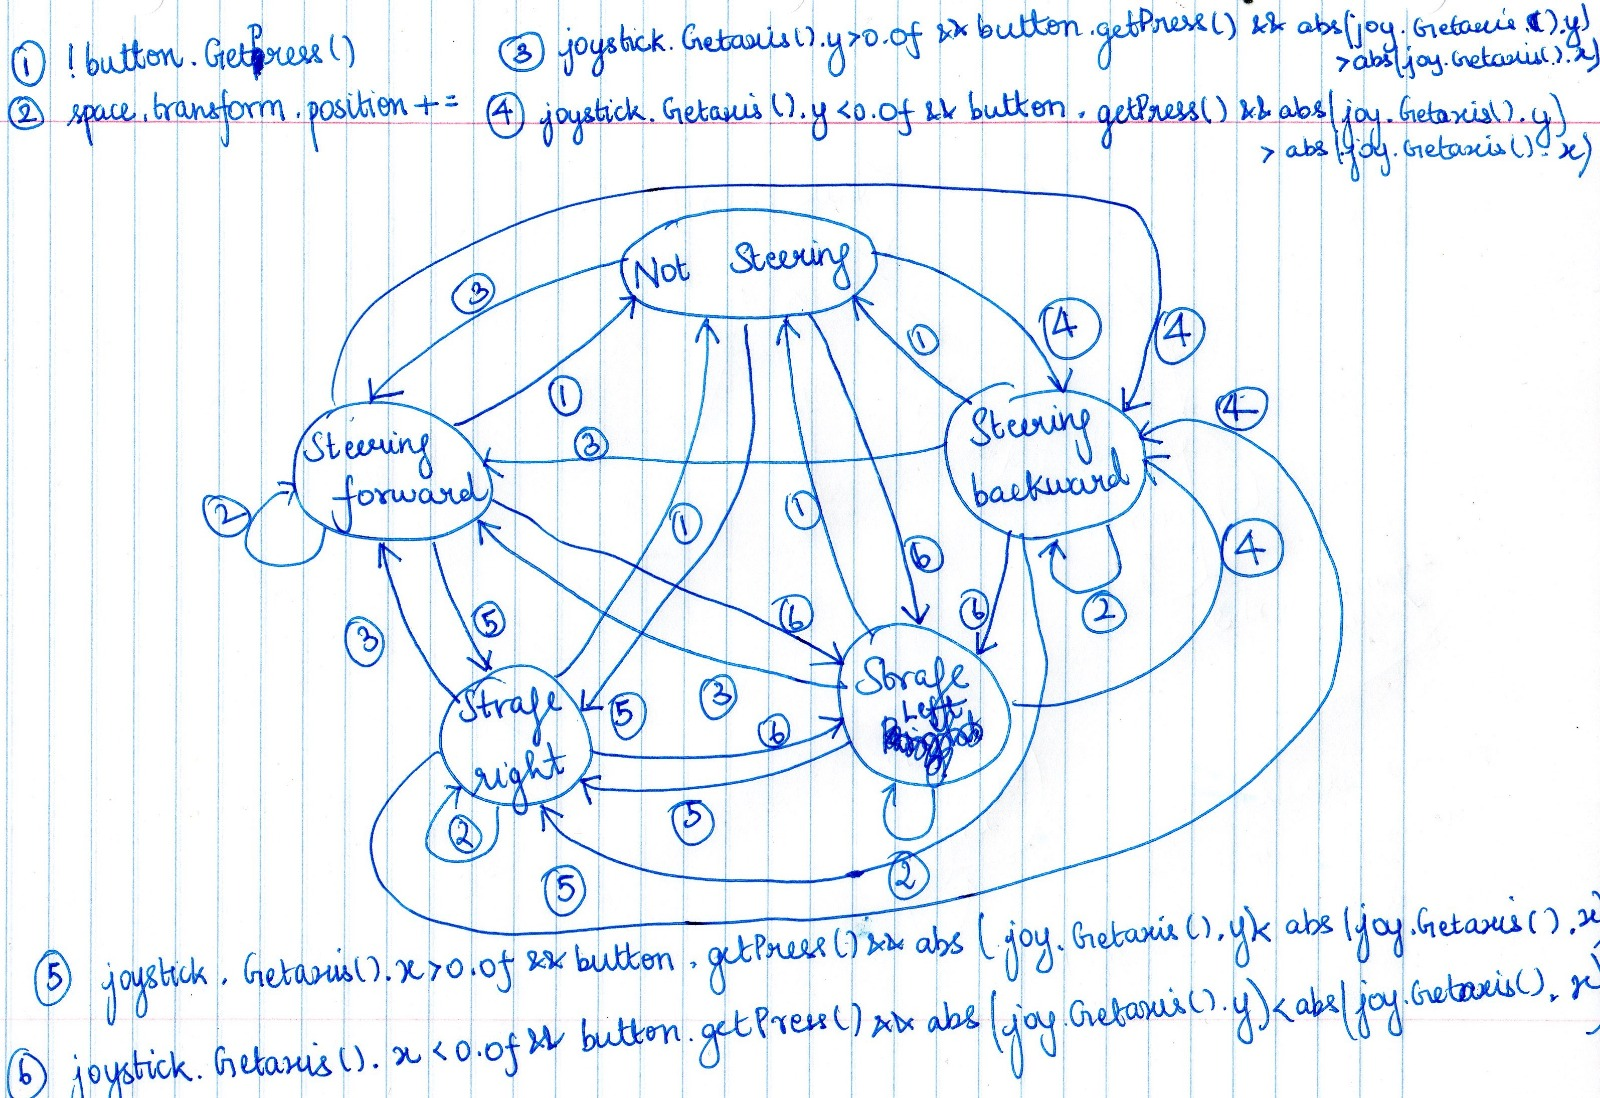 ① !button.GetPress()
② space.transform.position +=
③ joystick.Getaxis().y>0.0f && button.getPress() && abs(joy.Getaxis().y)
>abs(joy.Getaxis().x)
④ joystick.Getaxis().y<0.0f && button.getPress() && abs(joy.Getaxis().y)
> abs(joy.Getaxis().x)
Not Steering
③
④
④
①
①
④
Steering
forward
③
Steering
backward
②
①
①
⑥
④
③
⑤
⑥
⑥
②
Strafe
right
⑤
③
⑥
Strafe
Left
②
⑤
②
⑤
⑤ joystick.Getaxis().x>0.0f && button.getPress() && abs(joy.Getaxis().y)< abs(joy.Getaxis().x)
⑥ joystick.Getaxis().x<0.0f && button.getPress() && abs(joy.Getaxis().y)<abs(joy.Getaxis().x)